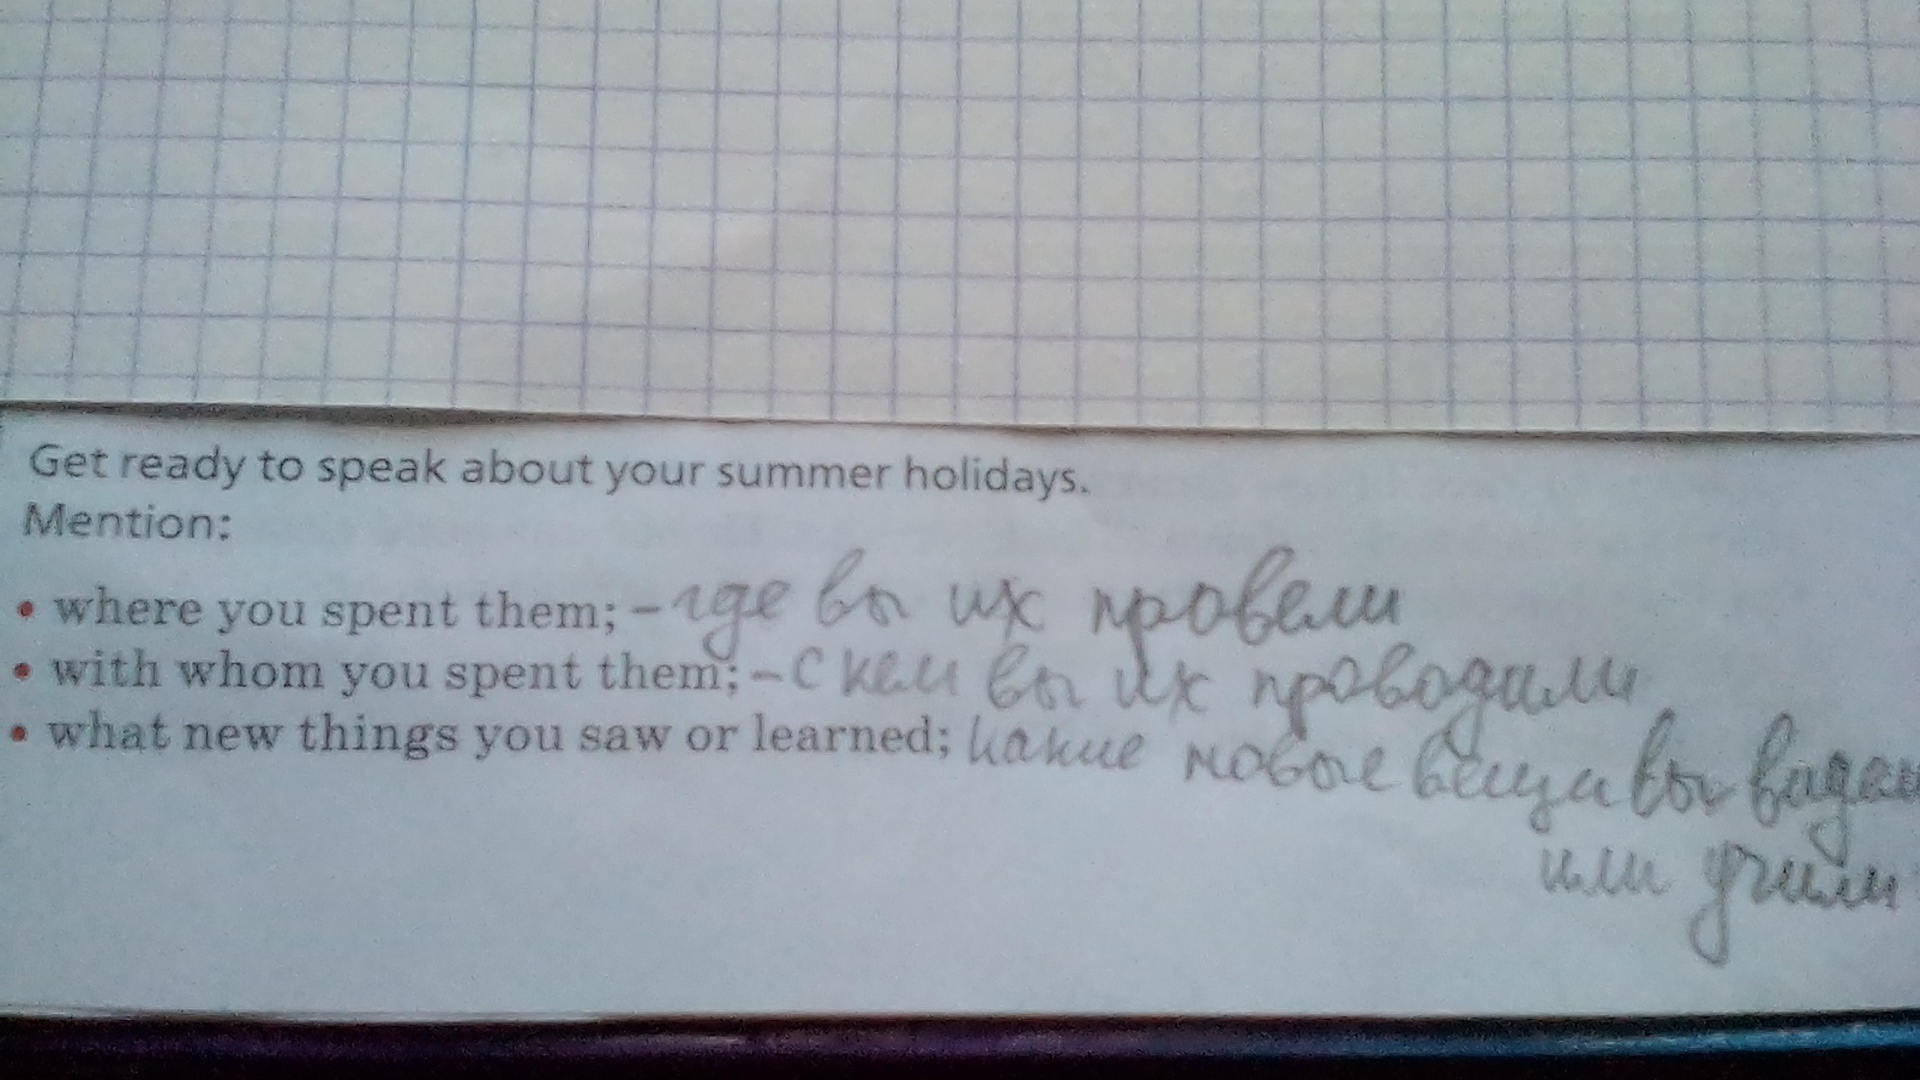 Get ready to speak about your summer holidays.
Mention:
• where you spent them; – где вы их провели
• with whom you spent them; – с кем вы их проводили
• what new things you saw or learned; какие новые вещи вы видели
или учили